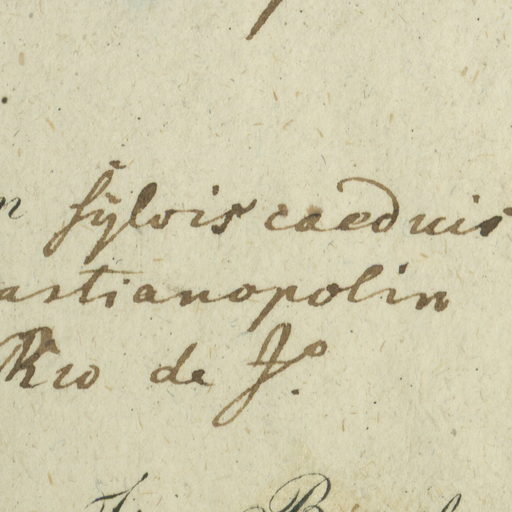 n sÿlvis caeduis
astianopolin
Rio de Jº.